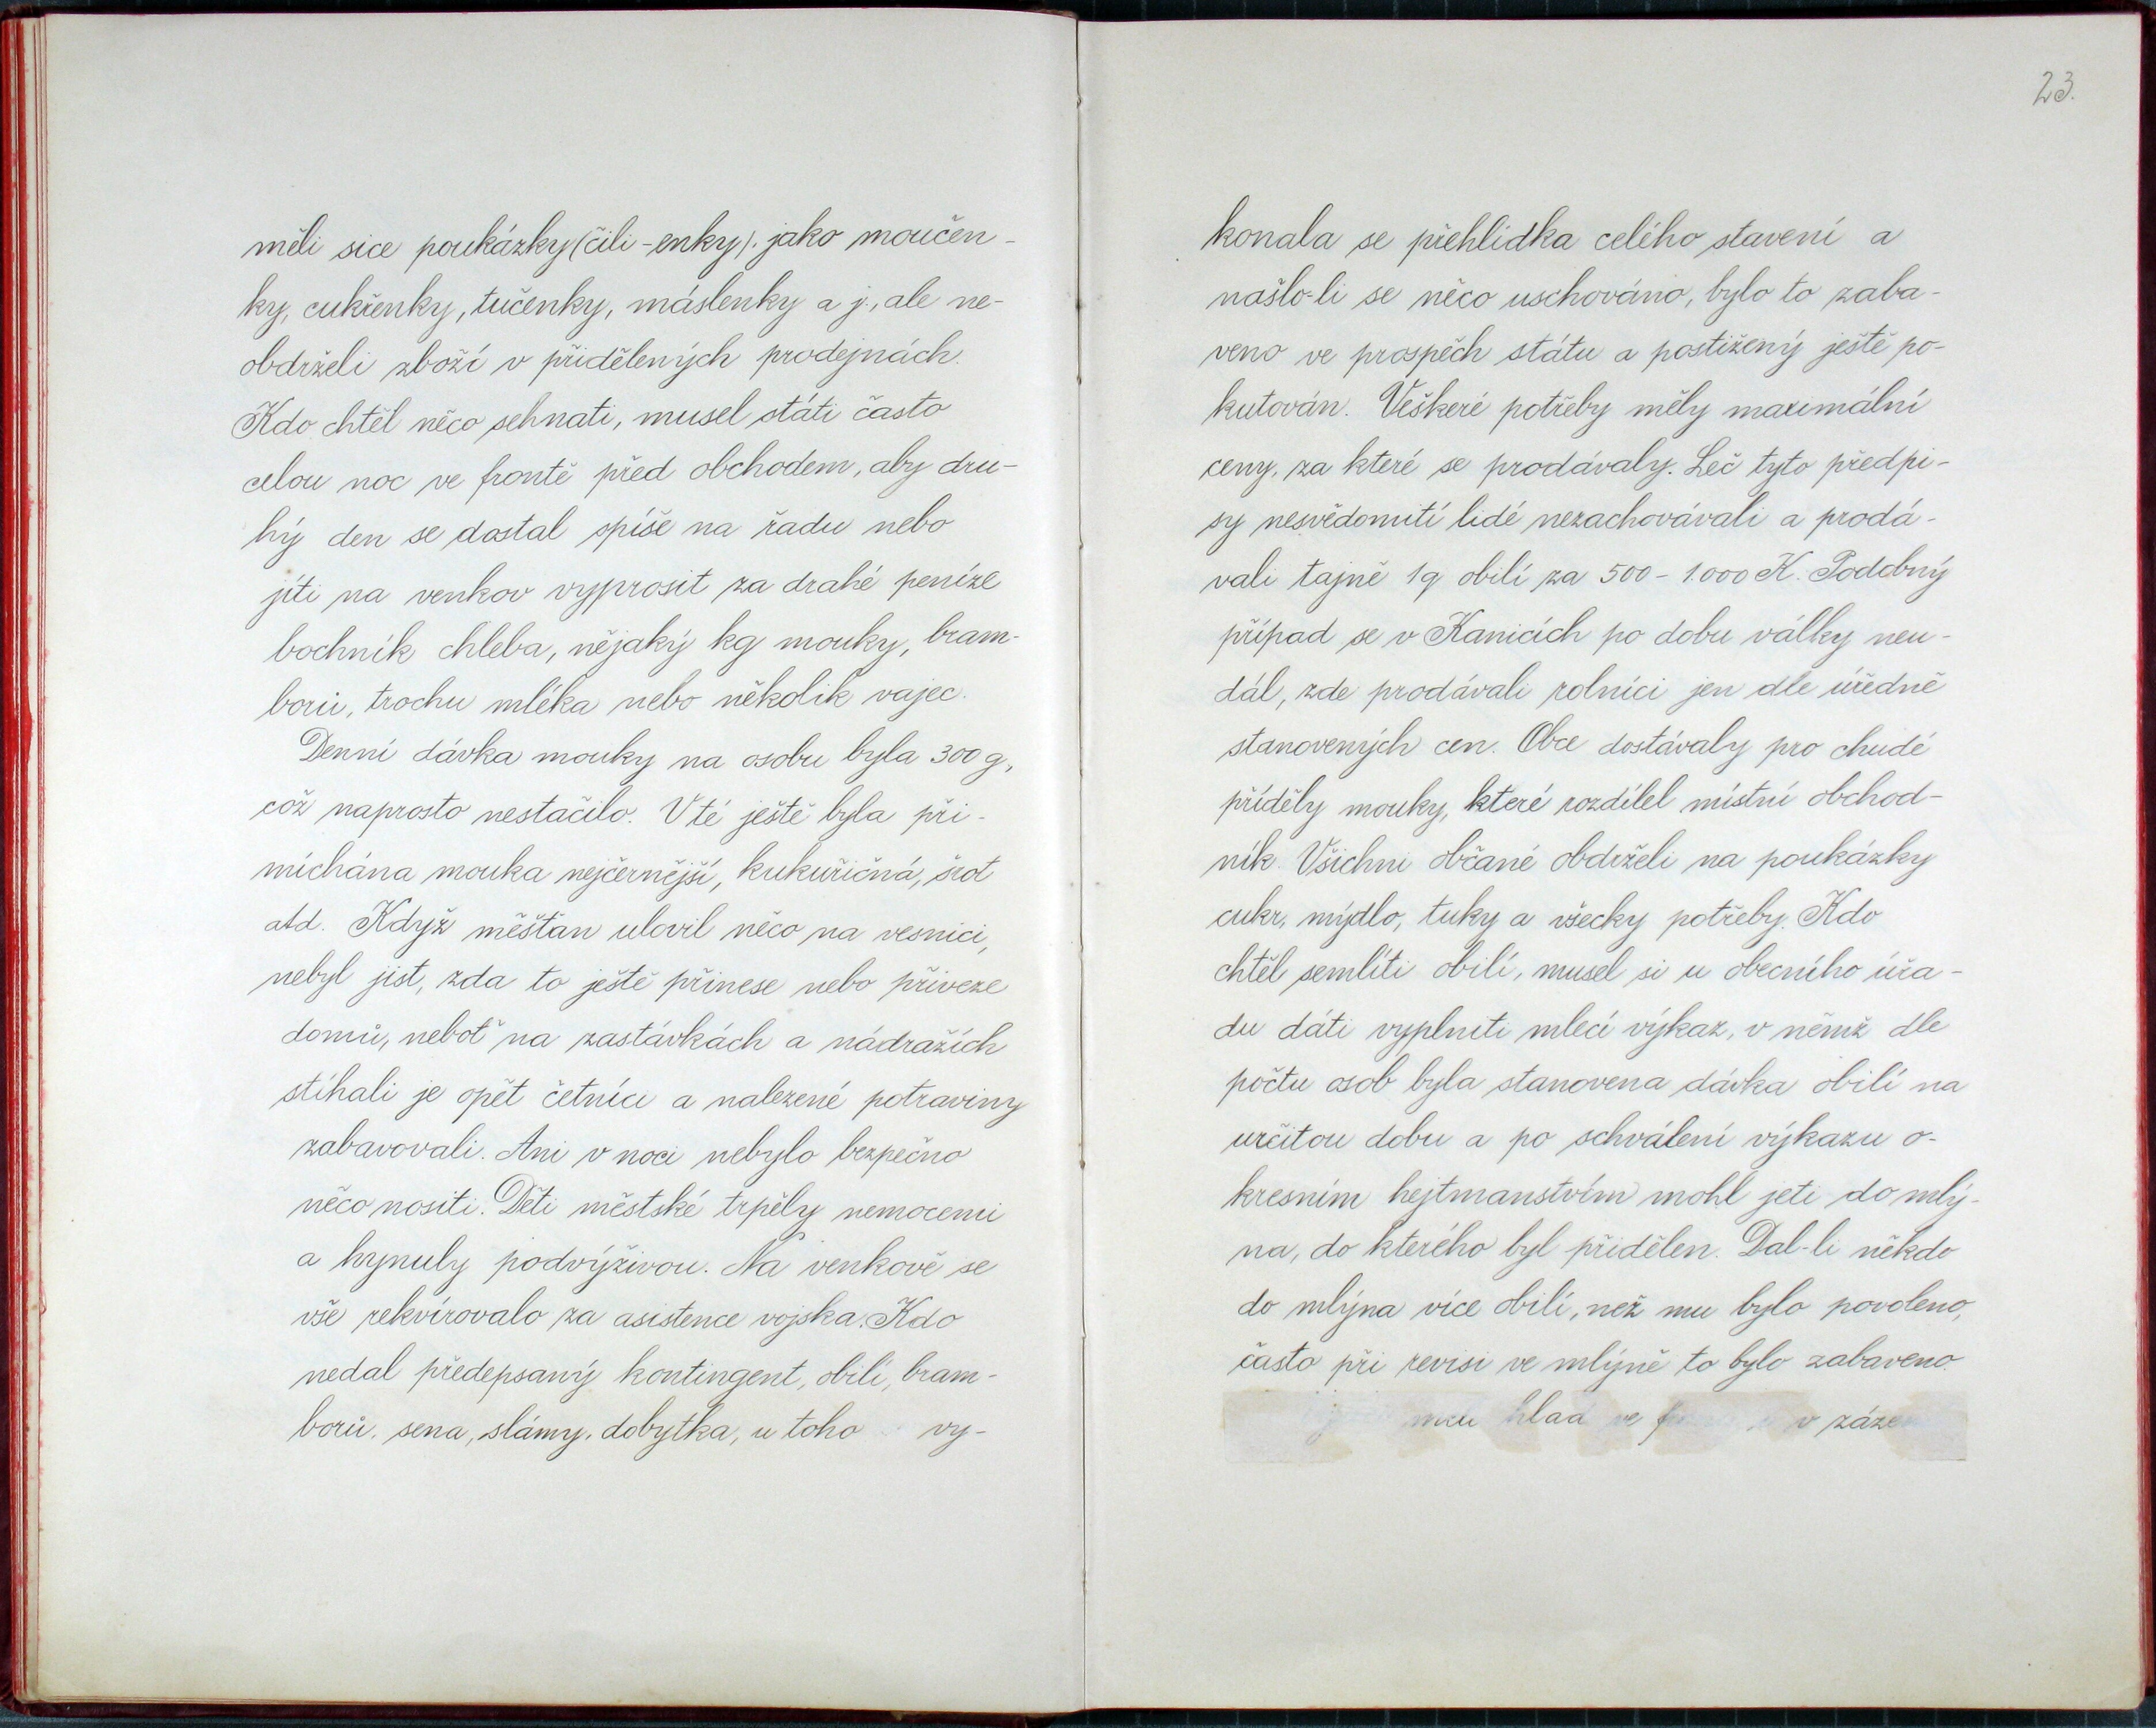 měli sice poukázky (čili -enky). jako moučen-
ky, cukřenky, tučenky, máslenky a j., ale ne-
obdrželi zboží v přidělených prodejnách.
Kdo chtěl něco sehnati, musel státi často
celou noc ve frontě před obchodem, aby dru-
hý den se dostal spíše na řadu nebo
jíti na venkov vyprosit za drahé peníze
bochník chleba, nějaký kg mouky, bram-
borů, trochu mléka nebo několik vajec.
Denní dávka mouky na osobu byla 300 g,
což naprosto nestačilo. V té ještě byla při-
míchána mouka nejčernější, kukuřičná, šrot
atd. Když měštan ulovil něco na vesnici,
nebyl jist, zda to ještě přinese nebo přiveze
domů, neboť na zastávkách a nádražích
stíhali je opět četníci a nalezené potraviny
zabavovali. Ani v noci nebylo bezpečno
něco nositi. Děti městské trpěly nemocemi
a hynuly podvýživou. Na venkově se
vše rekvírovalo za asistence vojska. Kdo
nedal předepsaný kontingent, obilí, bram-
borů, sena, slámy, dobytka, u toho vy-
23.
konala se přehlídka celého stavení a
našlo-li se něco uschováno, bylo to zaba-
veno ve prospěch státu a postižený ještě po-
kutován. Veškeré potřeby měly maximální
ceny, za které se prodávaly. Leč tyto předpi-
sy nesvědomití lidé nezachovávali a prodá-
vali tajně 1q obilí za 500 - 1.000 K. Podobný
případ se v Kanicích po dobu války neu-
dál, zde prodávali rolníci jen dle úředně
stanovených cen. Obce dostávaly pro chudé
příděly mouky, které rozdílel místní obchod-
ník. Všichni občané obdrželi na poukázky
cukr, mýdlo, tuky a všecky potřeby. Kdo
chtěl semlíti obilí, musel si u obecního úřa-
du dáti vyplniti mlecí výkaz, v němž dle
počtu osob byla stanovena dávka obilí na
určitou dobu a po schválení výkazu o-
kresním hejtmanstvím mohl jeti do mlý-
na, do kterého byl přidělen. Dal-li někdo
do mlýna více obilí, než mu bylo povoleno,
často při revisi ve mlýně to bylo zabaveno.
hlad ve v záze